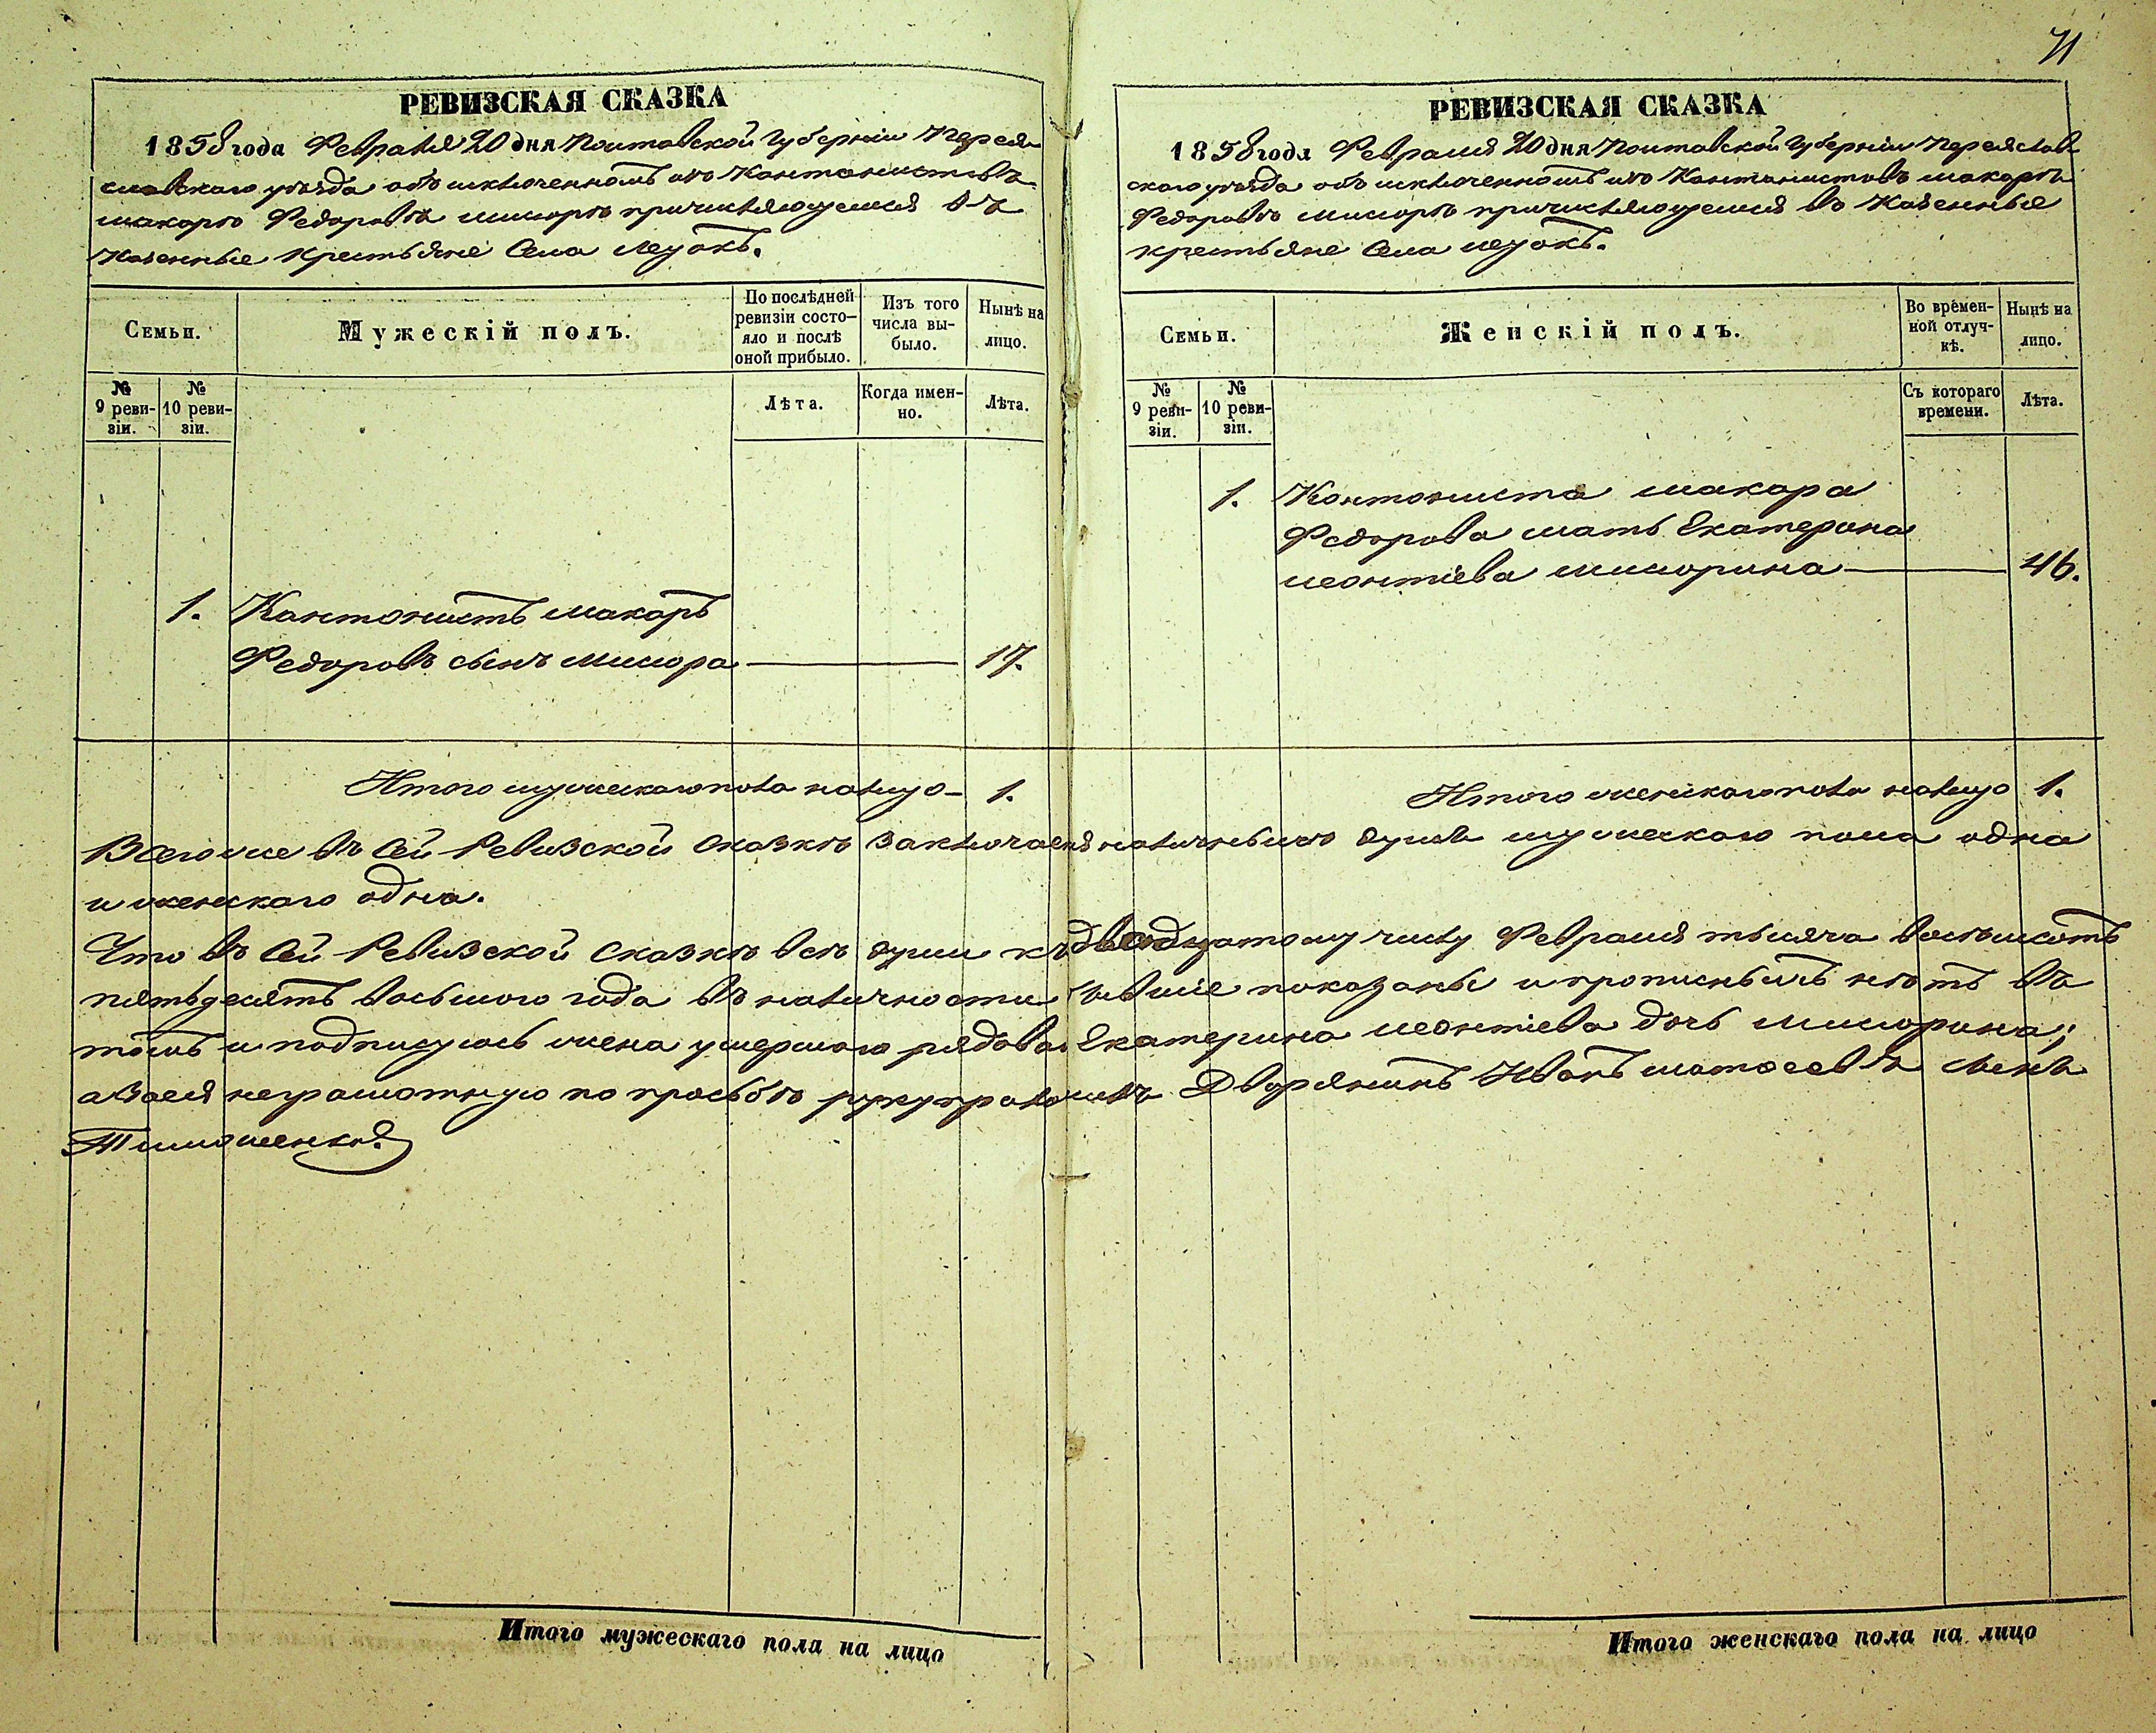 71
РЕВИЗСКАЯ СКАЗКА
1858 года Февраля 20 дня Полтавской Губерніи Перея-
славскаго уезда объ исключенномъ изъ Кантонистовъ
макаре Федорове причисляющемся въ
Казенные крестьяне Села
Семьи.
Мужескій полъ.
По послѣдней ревизіи состо-
яло и послѣ оной прибыло.
Изъ того числа вы-
было.
Нынѣ на лицо.
№ 9 реви-
зіи.
№ 10 реви-
зіи.
Лѣта.
Когда имен-
но.
Лѣта.
1. Кантонистъ макаръ
Федоровъ сынъ 17.
Итого мужескаго пола налицо - 1.
РЕВИЗСКАЯ СКАЗКА
1858 года Февраля 20 дня Полтавской Губерніи Переяслав
скаго уезда объ исключенномъ изъ Кантонистовъ макаре
Федорове причисляющемся въ Казенные
крестьяне Села
Семьи.
Женскій полъ.
Во времен-
ной отлуч-
кѣ.
Нынѣ на лицо.
№ 9 реви-
зіи.
№ 10 реви-
зіи.
Съ котораго времени.
Лѣта.
1. Кантониста макара
Федорова мать Екатерина
леонтіева 46.
Итого женскаго пола налицо 1.
Всего же въ сей Ревизской сказке заключается наличныхъ душъ мужескаго пола одна
и женскаго одна.
Что въ сей Ревизской Сказке все души къ двадцатому числу Февраля тысяча восемьсотъ
пятьдесятъ восьмого года въ наличности бывшіе показаны и прописныхъ нетъ въ
томъ и подписуюсь жена умершаго рядова Екатерина леонтіева дочь
а за нея неграмотную по прозьбе Дворянинъ Иванъ сынъ
Тимошенко.
Итого мужескаго пола на лицо
Итого женскаго пола на лицо